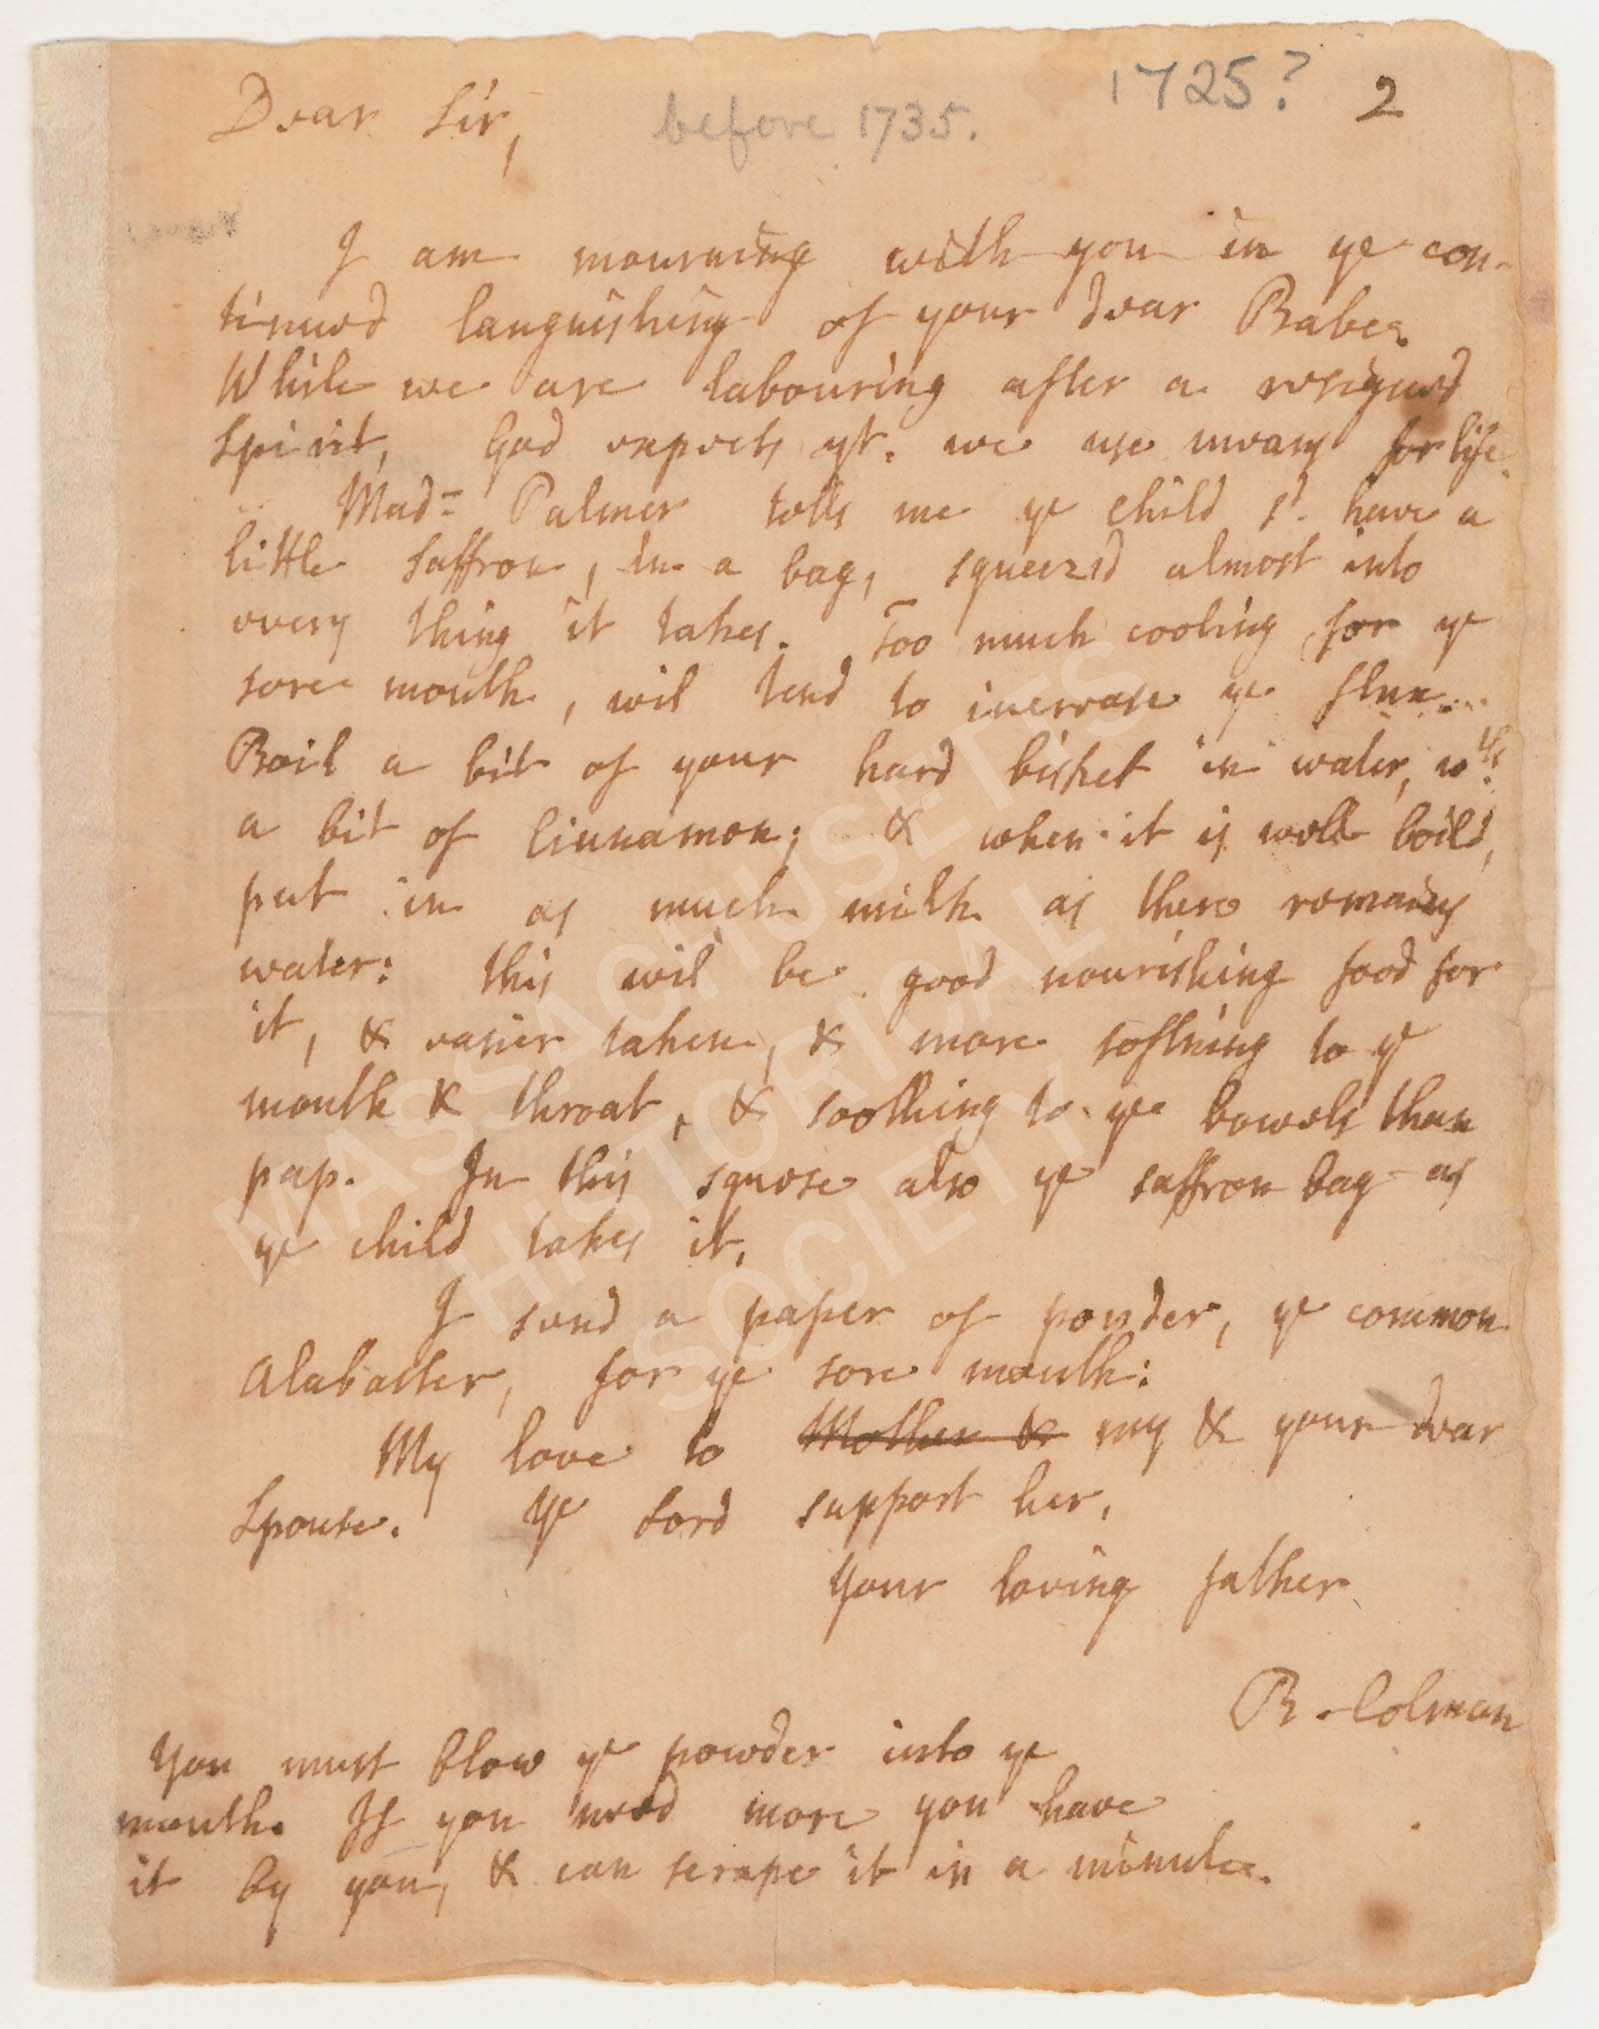 1725? 2
Dear Sir, before 1735.
I am mourning with you in ye con-
tinued languishing of your dear Babe.
While we are labouring after a resigned
Spirit, God expects yt. we use means for life.
Mad= Palmer tells me ye child sd. have a
little saffron, in a bag, squeezed almost into
every thing it takes. Too much cooling for ye
sore mouth, wil tend to increase ye flux.
Boil a bit of your hard bisket in water, wth.
a bit of Cinnamon; & when it is well boild,
put in as much milk as there remains
water: this wil be good nourishing food for
it, & easier taken, & more softning to ye
mouth & throat, & soothing to ye bowels than
pap. In this squese also ye saffron bag as
ye child takes it.
I send a paper of powder, ye common
Alabaster, for ye sore mouth:
My love to Mother & my & your dear
Spouse. Ye Lord support her,
Your loving father
B. Colman
You must blow ye powder into ye
mouth. If you need more you have
it by you, & can scrape it in a minute.
MASSACHUSETTS
HISTORICAL
SOCIETY